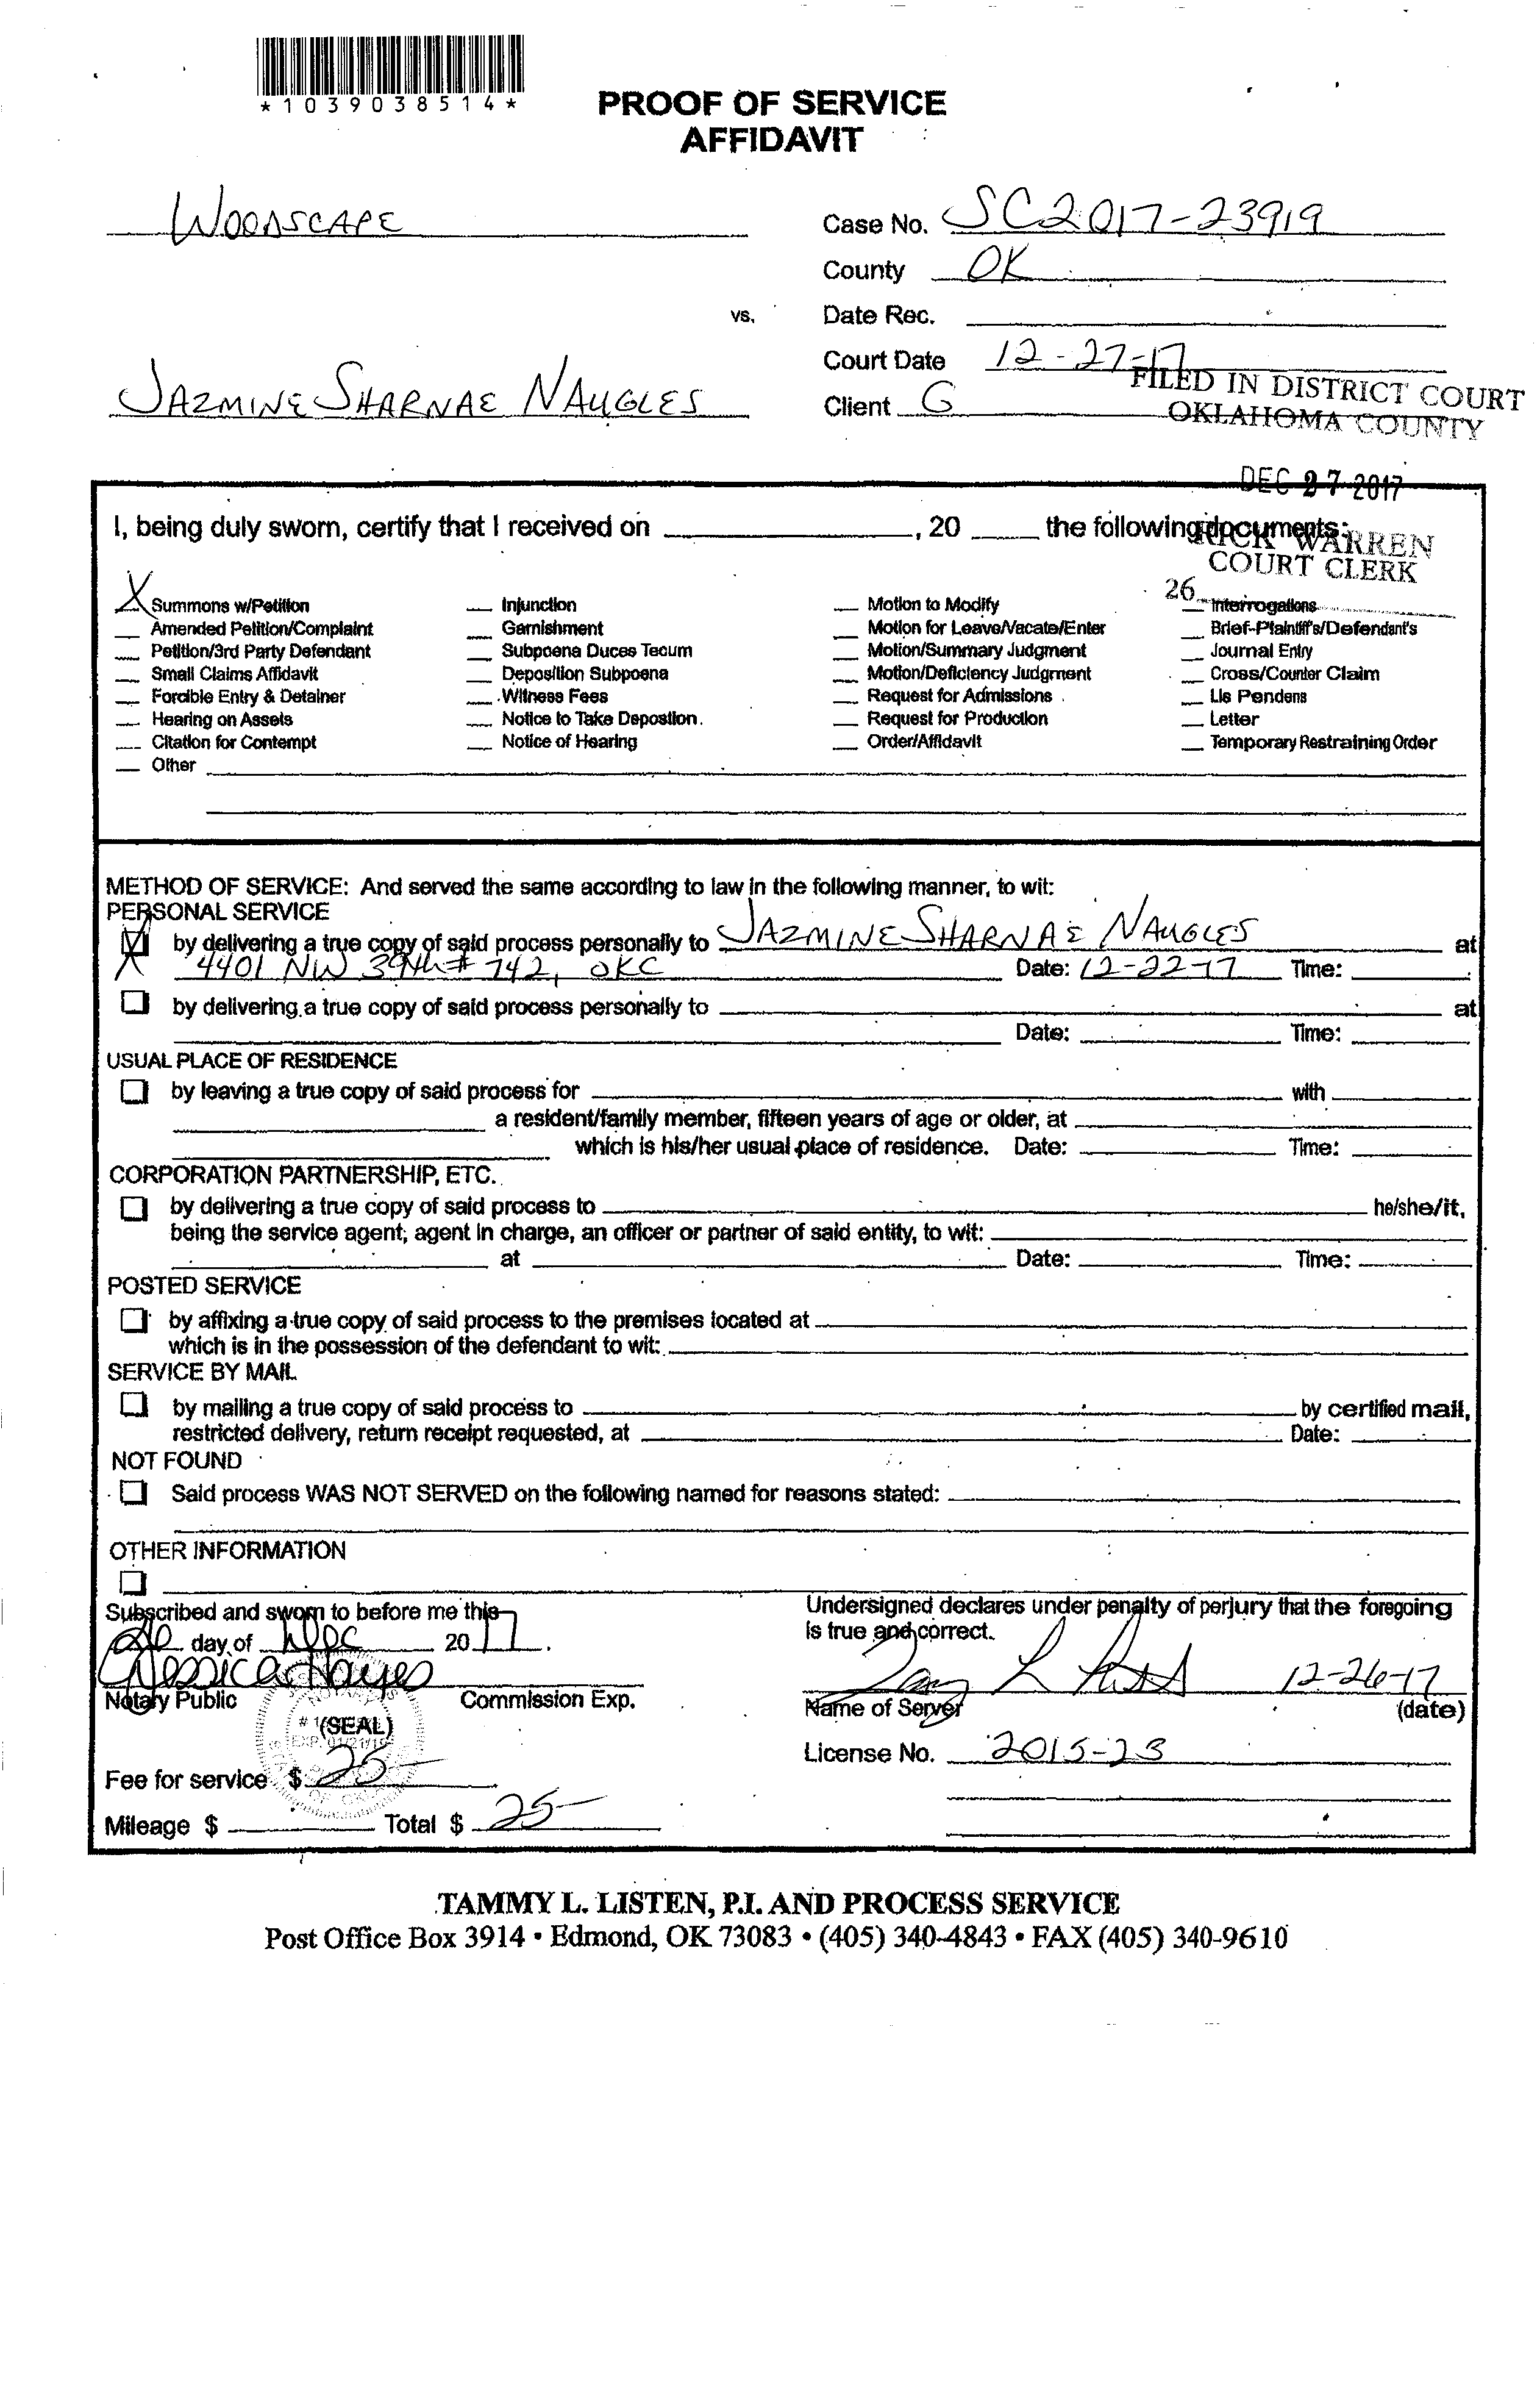 *1039038514*
PROOF OF SERVICE
AFFIDAVIT
WOODSCAPE
Case No. SC2017-23919
County OK
vs.
Date Rec.
Court Date 12-27-17
JAZMINE SHARNAE NAUGLES
Client G
FILED IN DISTRICT COURT
OKLAHOMA COUNTY
DEC 27 2017
RICK WARREN
COURT CLERK
26
I, being duly sworn, certify that I received on ____, 20 ____ the following documents:
X Summons w/Petition
Amended Petition/Complaint
Petition/3rd Party Defendant
Small Claims Affidavit
Forcible Entry & Detainer
Hearing on Assets
Citation for Contempt
Other
Injunction
Garnishment
Subpoena Duces Tecum
Deposition Subpoena
Witness Fees
Notice to Take Depostion.
Notice of Hearing
Motion to Modify
Motion for Leave/Vacate/Enter
Motion/Summary Judgment
Motion/Deficiency Judgment
Request for Admissions
Request for Production
Order/Affidavit
Interrogations
Brief-Plaintiff's/Defendant's
Journal Entry
Cross/Counter Claim
Lis Pendens
Letter
Temporary Restraining Order
METHOD OF SERVICE: And served the same according to law in the following manner, to wit:
PERSONAL SERVICE
X by delivering a true copy of said process personally to JAZMINE SHARNAE NAUGLES at
4401 NW 39th # 742, OKC Date: 12-22-17 Time:
by delivering a true copy of said process personally to ____ at
Date: ____ Time:
USUAL PLACE OF RESIDENCE
by leaving a true copy of said process for ____ with
a resident/family member, fifteen years of age or older, at
which is his/her usual place of residence. Date: ____ Time:
CORPORATION PARTNERSHIP, ETC.
by delivering a true copy of said process to ____ he/she/it,
being the service agent; agent in charge, an officer or partner of said entity, to wit:
at ____ Date: ____ Time:
POSTED SERVICE
by affixing a true copy of said process to the premises located at
which is in the possession of the defendant to wit:
SERVICE BY MAIL
by mailing a true copy of said process to ____ by certified mail,
restricted delivery, return receipt requested, at ____ Date:
NOT FOUND
Said process WAS NOT SERVED on the following named for reasons stated:
OTHER INFORMATION
Subscribed and sworn to before me this
26 day of Dec 2017.
Jessica Hayes
Notary Public Commission Exp.
(SEAL)
EXP. 01/21/19
Fee for service $ 25-
Mileage $ ____ Total $ 25-
Undersigned declares under penalty of perjury that the foregoing
is true and correct.
12-26-17
Name of Server (date)
License No. 2015-23
TAMMY L. LISTEN, P.I. AND PROCESS SERVICE
Post Office Box 3914 • Edmond, OK 73083 • (405) 340-4843 • FAX (405) 340-9610